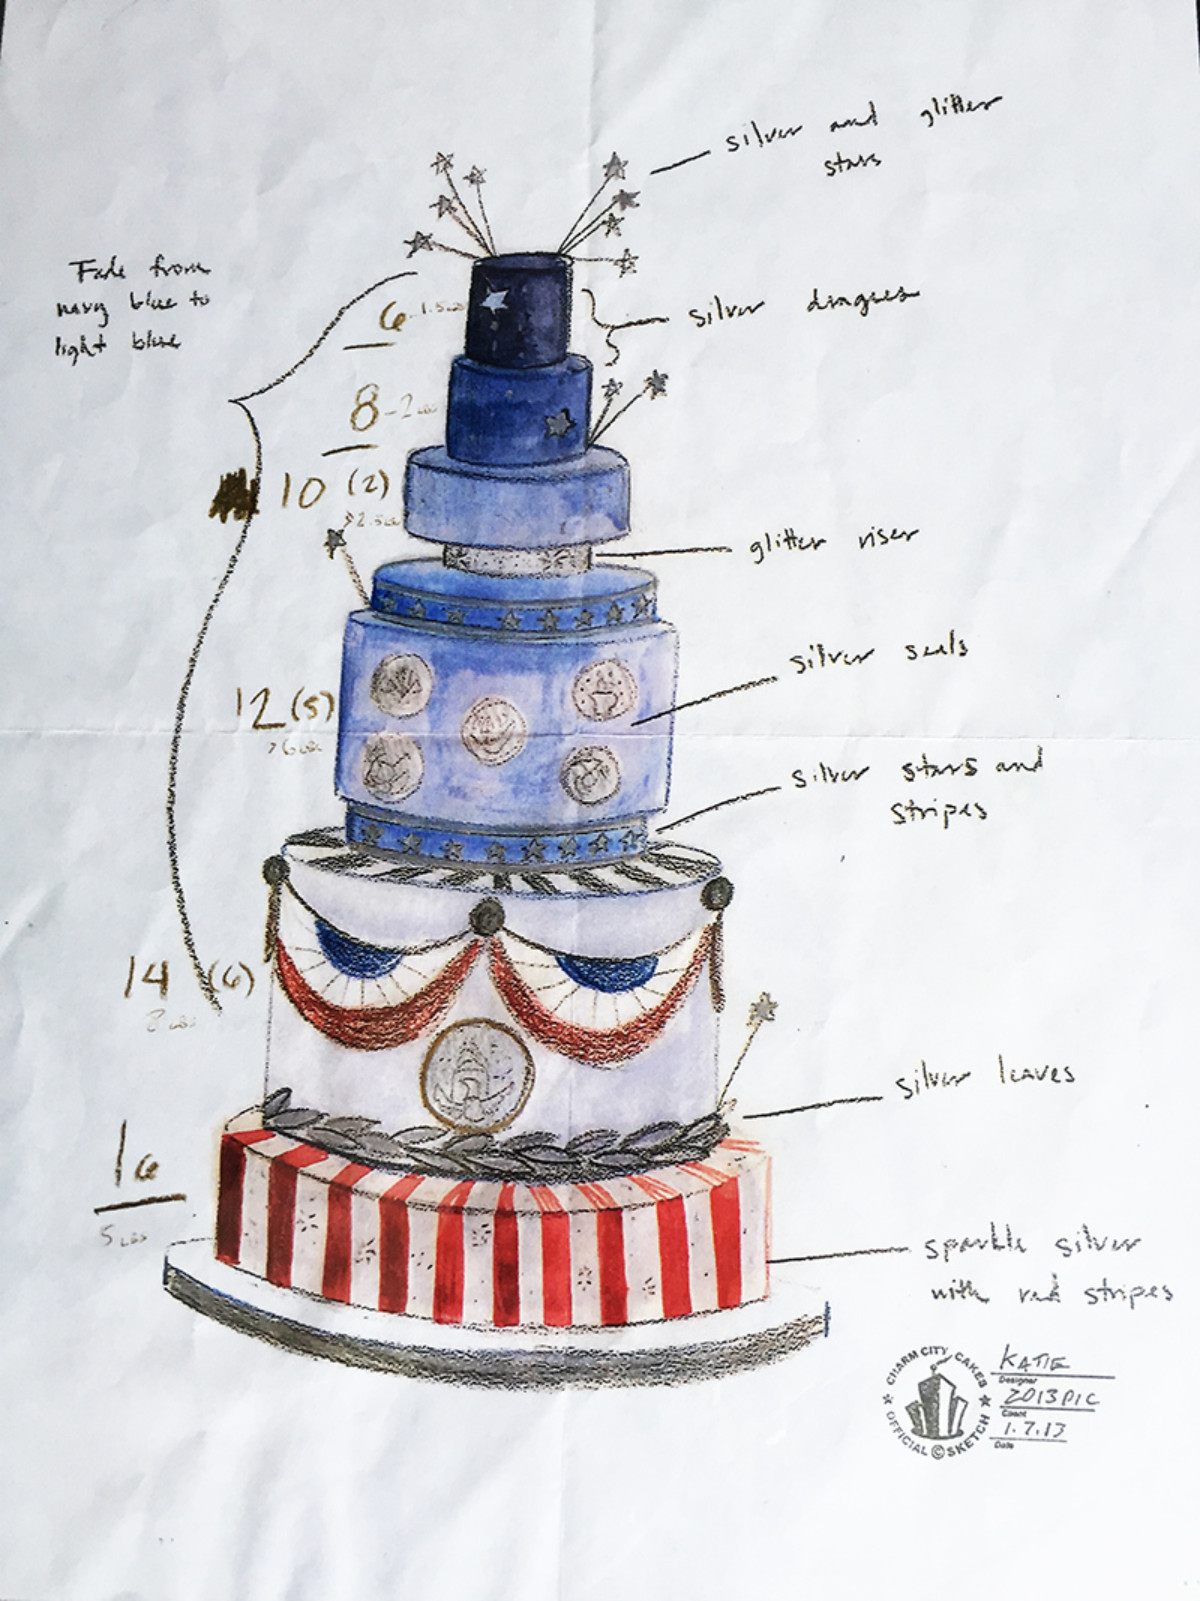 silver and glitter
stars
Fade from
navy blue to
light blue
6 - 1.5 LBS
silver dragees
8 - 2 LBS
10 (2)
> 2.5 LBS
glitter riser
silver seals
12 (5)
> 6 LBS
silver stars and
stripes
14 (6)
8 LBS
silver leaves
16
5 LBS
sparkle silver
with red stripes
CHARM CITY CAKES
OFFICIAL © SKETCH
KATIE
Designer
2013PIC
Client
1.7.13
Date